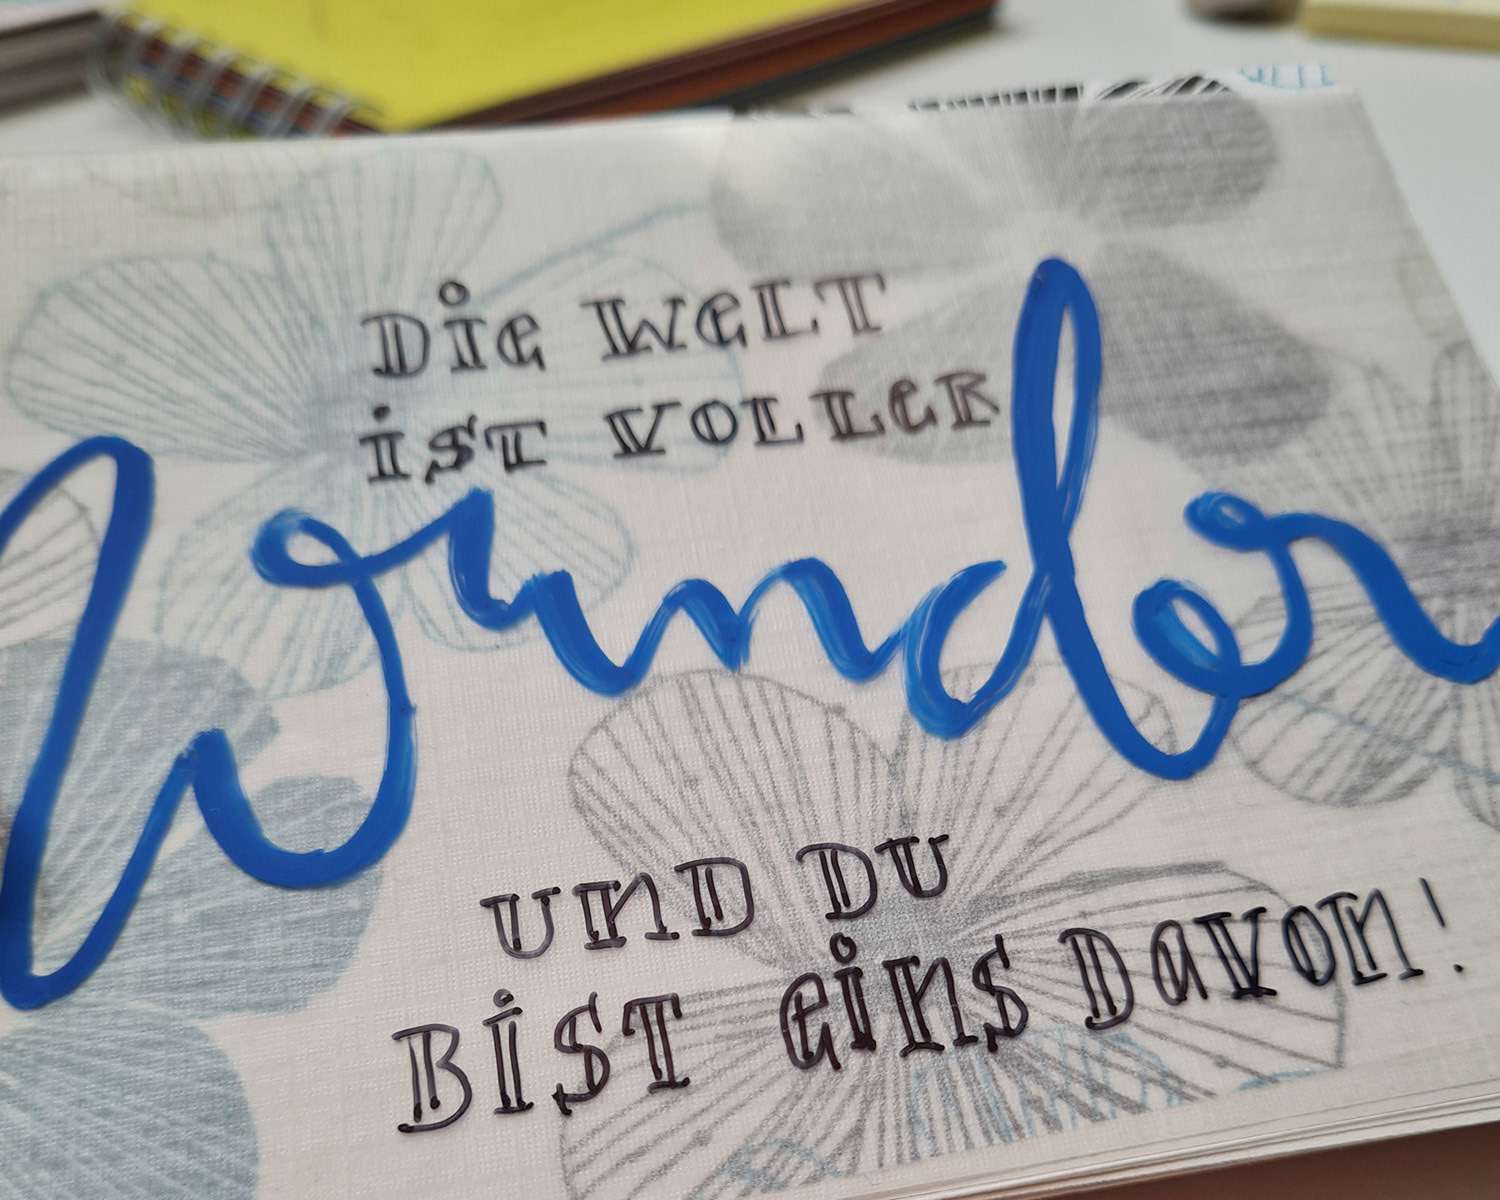 Die Welt
ist voller
Wunder
und du
bist eins davon!